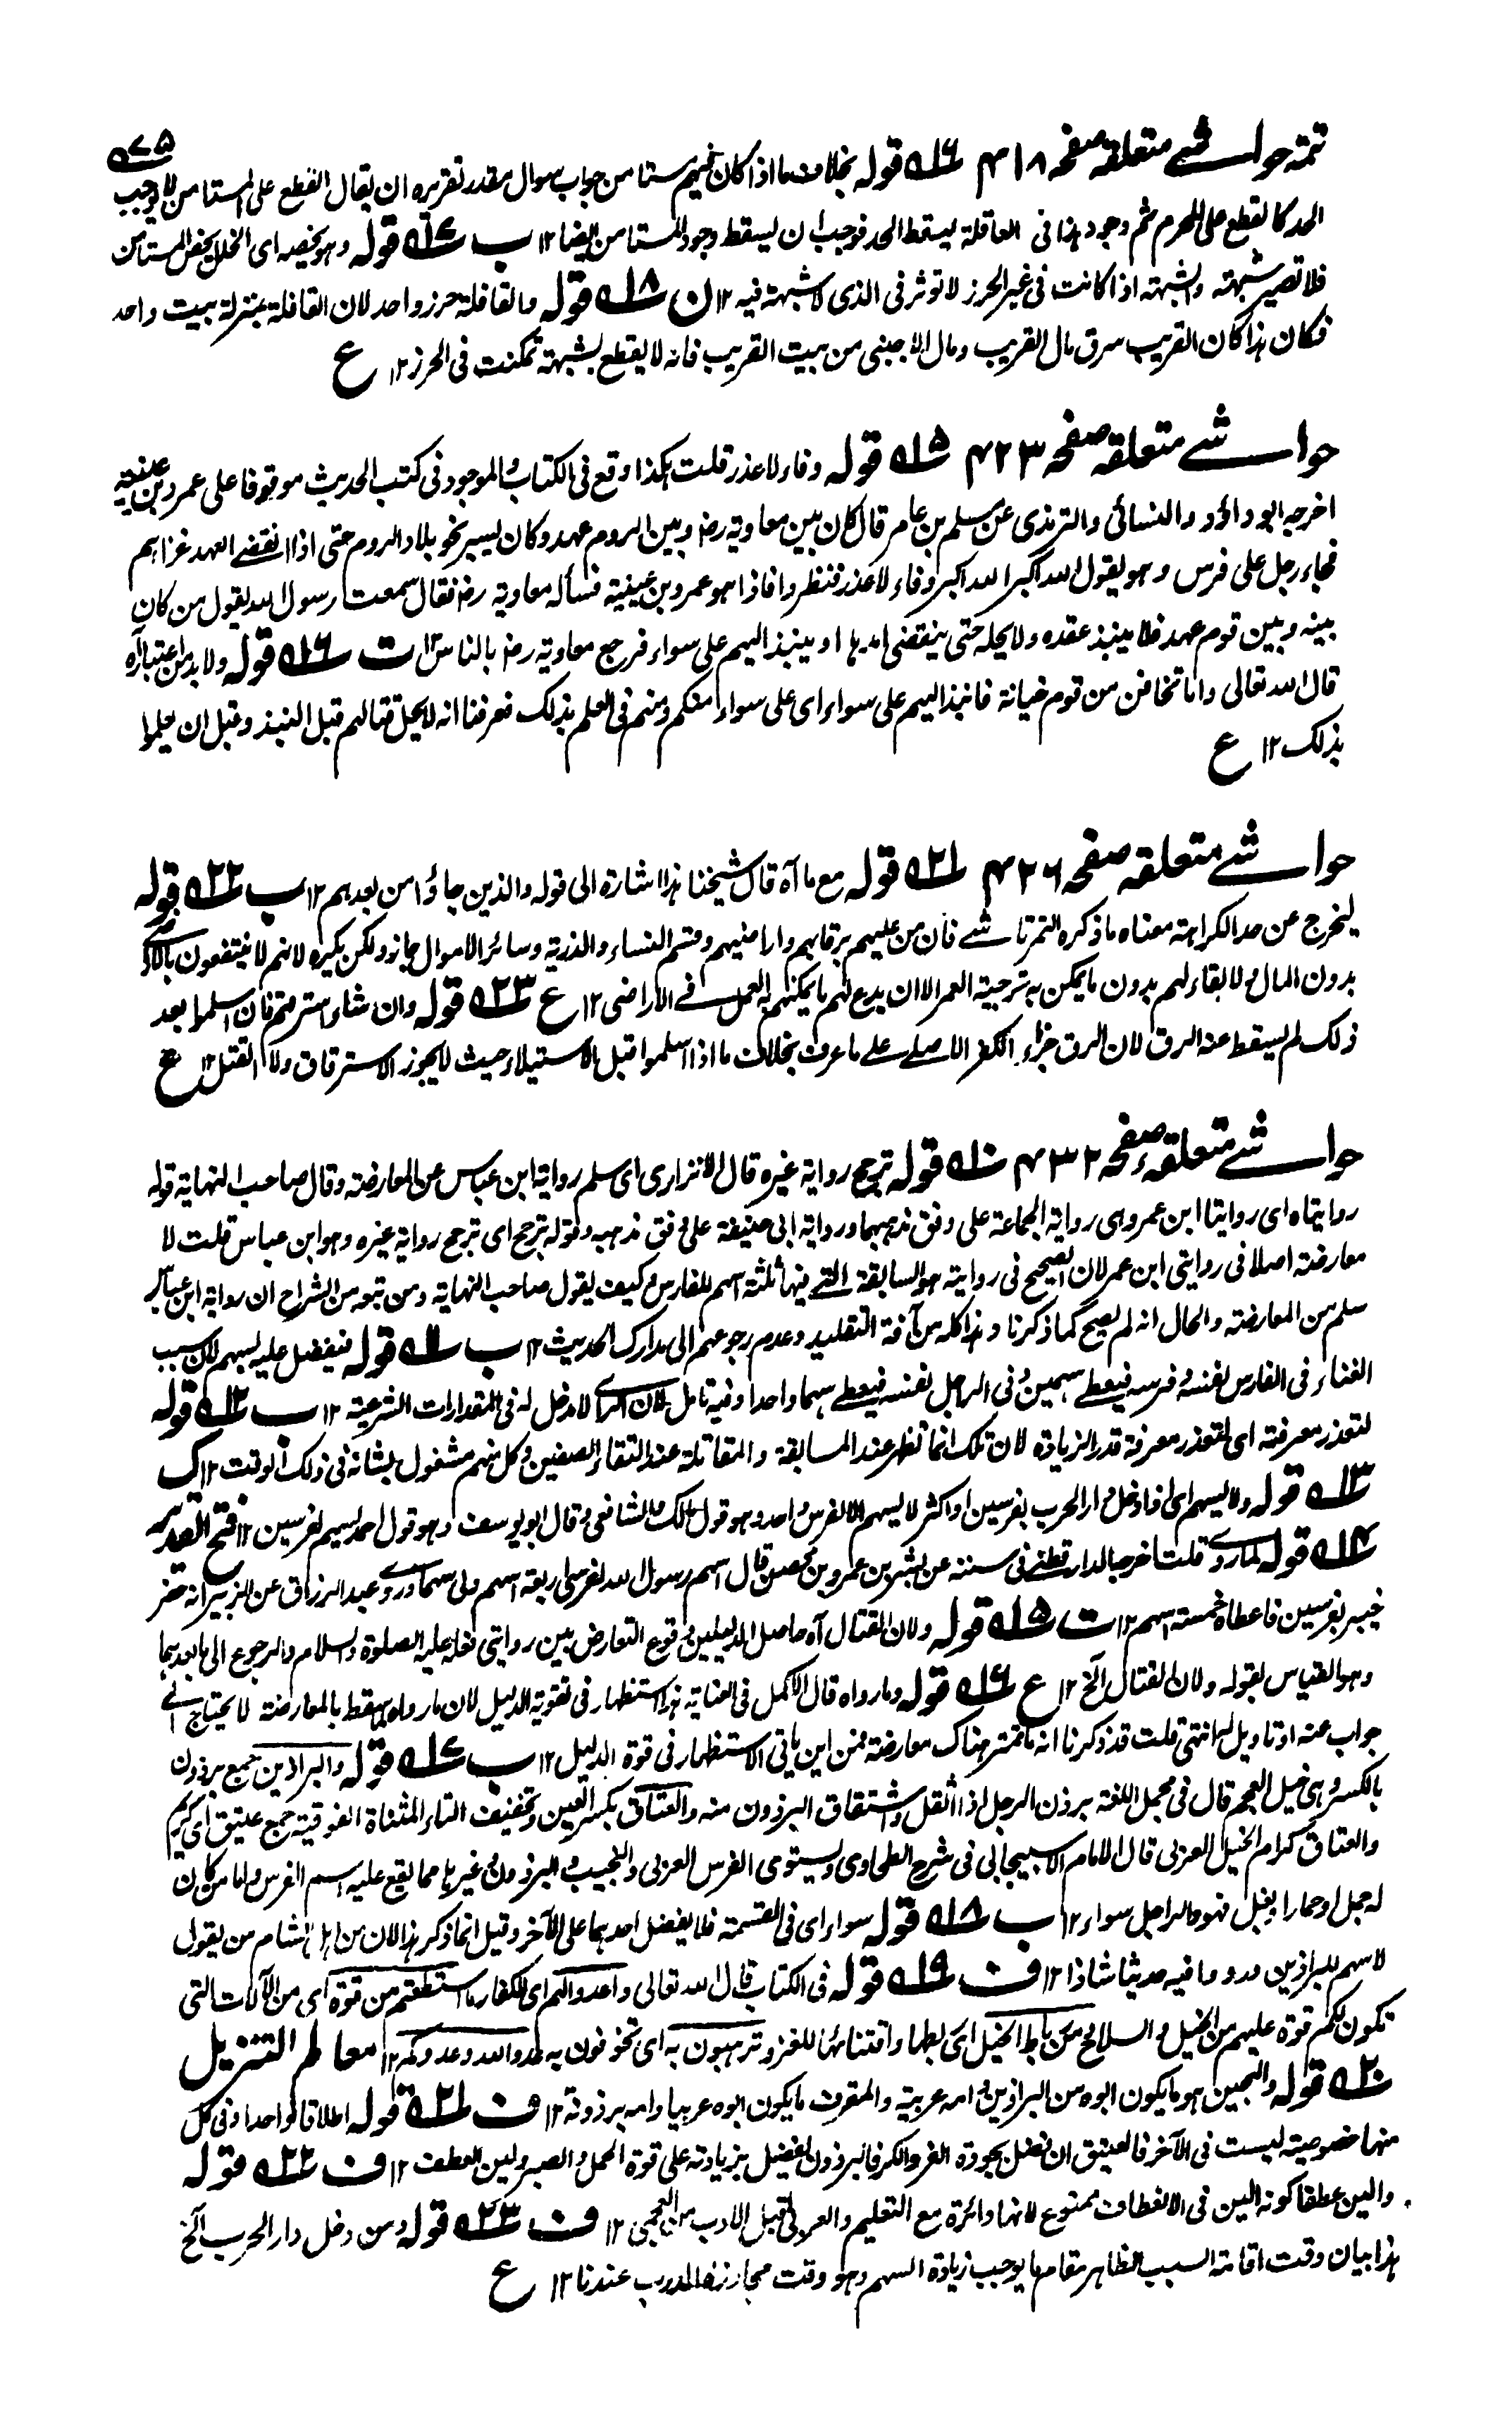 ۵۷۵
تتمه حواشے متعلقه صفحه ۴۱۸ ۱۶ قوله بخلاف ما اذا كان فيهم مستامن جواب سوال مقدر تقريره ان يقال القطع على المستامن لا يوجب
الحد كالقطع على المحرم ثم وجود هذا فى القافلة يسقط الحد فوجب ان يسقط وجود المستامن ايضا ١٢ ب ۱۷ قوله وهو يخصه اى الخلل يخص المستامن
فلا تصير شبهته والشبهته اذا كانت فى غير الحرز لا توثر فى الذى لا شبهة فيه ١٢ ن ۱۸ قوله والقافلة حرز واحد لان القافلة بمنزلة بيت واحد
فكان هذا كان القريب سرق مال القريب ومال الاجنبى من بيت القريب فانه لا يقطع بشبهة تمكنت فى الحرز ١٢ ع
حواشے متعلقه صفحه ۴۲۳ ۱۵ قوله وفاء لا غدر قلت هكذا وقع فى الكتاب والموجود فى كتب الحديث موقوفا على عمرو بن عيينة
اخرجه ابو داؤد والنسائى والترمذى عن سليم بن عامر قال كان بين معاوية رضـ وبين الروم عهد وكان يسير نحو بلاد الروم حتى اذا انقضے العهد غزاهم
فجاء رجل على فرس وهو يقول الله اكبر الله اكبر وفاء لا غدر فنظروا فاذا هو عمرو بن عيينة فسأله معاوية رضـ فقال سمعت رسول الله يقول من كان
بينه وبين قوم عهد فلا ينبذ عقده ولا يحله حتى ينقضى امدها او ينبذ اليهم على سواء فرجع معاوية رضـ بالناس ١٢ ت ۱۶ قوله ولا بد من اعتبار آه
قال الله تعالى واما تخافن من قوم خيانة فانبذ اليهم على سواء اى على سواء منكم ومنهم فى العلم بذلك فعرفنا انه لا يحل قتالهم قبل النبذ وقبل ان يعلموا
بذلك ١٢ ع
حواشے متعلقه صفحه ۴۲۶ ۲۱ قوله مع ما آه قال شيخنا هذا اشارة الى قوله والذين جاؤا من بعدهم ١٢ ب ۲۲ قوله
ليخرج عن حد الكراهة معناه ما ذكره التمرتاشے فان من عليهم برقابهم واراضيهم وقسم النساء والذرية وسائر الاموال جاز ولكن يكره لانهم لا ينتفعون بالاراضى
بدون المال ولا بقاء لهم بدون ما يمكن به تزجية العمر الا ان يدع لهم ما يمكنهم به العمل فے الاراضى ١٢ ع ۲۳ قوله وان شاء استرقهم فان اسلموا بعد
ذلك لم يسقط عنه الرق لان الرق جزاء الكفر الاصلے علے ما عرف بخلاف ما اذا اسلموا قبل الاستيلاء حيث لا يجوز الاسترقاق ولا القتل ١٢ ع
حواشے متعلقه صفحه ۴۳۲ ۱۰ قوله ترجح رواية غيره قال الاترارى اى سلم رواية ابن عباس عن المعارضة وقال صاحب النهاية قوله
روايتاه اى روايتا ابن عمر وهى رواية الجماعة على وفق مذهبهما ورواية ابى حنيفة على وفق مذهبه وقوله ترجح اى ترجح رواية غيره وهو ابن عباس قلت لا
معارضة اصلا فى روايتى ابن عمر لان الصحيح فى روايته هو السابقة التے فيها ثلثة اسهم للفارس وكيف يقول صاحب النهاية ومن تبعه من الشراح ان رواية ابن عباس
سلم من المعارضة والحال انه لم يصح كما ذكرنا وهذا كله من آفة التقليد وعدم رجوعهم الى مدارك الحديث ١٢ ب ۱۱ قوله فيفضل عليه بسهم لان سبب
الغناء فى الفارس نفسه وفرسه فيعطے سهمين وفى الراجل نفسه فيعطے سهما واحدا وفيه تامل لان الراے لا مدخل له فى المقدارات الشرعية ١٢ ب ۱۲ قوله
لتعذر معرفته اى لتعذر معرفة قدر الزيادة لان تلك انما تظهر عند المسابقة والمقاتلة عند التقاء الصفين وكل منهم مشغول بشانه فى ذلك الوقت ١٢ ك
۱۳ قوله ولا يسهم اى اذا دخل دار الحرب بفرسين او اكثر لا يسهم الا لفرس واحد وهو قول مالك والشافعى وقال ابو يوسف وهو قول احمد يسهم لفرسين ١٢ فتح القدير
۱۴ قوله لما روے قلت اخرجه الدارقطنے فى سننه عن بشير بن عمرو بن محصن قال اسهم رسول الله لفرسى اربعة اسهم ولى سهما وروے عبد الرزاق عن الزبير انه حضر
خيبر بفرسين فاعطاه خمسة اسهم ١٢ ت ۱۵ قوله ولان القتال آه حاصل الدليلين وقوع التعارض بين روايتى فعله عليه الصلوة والسلام والرجوع الى ما بعدهما
وهو القياس بقوله ولان القتال الخ ١٢ ع ۱۶ قوله وما رواه قال الاكمل فى العناية هذا استظهار فى تقوية الدليل لان ما رواه لما سقط بالمعارضة لا يحتاج الے
جواب عنه او تاويل لها انتهى قلت قد ذكرنا انه ما ثمة هناك معارضة فمن اين ياتى الاستظهار فى قوة الدليل ١٢ ب ۱۷ قوله والبراذين جمع برذون
بالكسر وهى خيل العجم قال فى مجمل اللغة برذن الرجل اذا اثقل واشتقاق البرذون منه والعتاق بكسر العين وتخفيف التاء المثناة الفوقية جمع عتيق اى كريم
والعتاق كرام الخيل العربى قال الامام الاسبيجابى فى شرح الطحاوى ويستوى الفرس العربى والنجيب والبرذون وغيرها مما يقع عليه اسم الفرس واما من كان
له جمل او حمار او بغل فهو والراجل سواء ١٢ ب ۱۸ قوله سواء اى فى القسمة فلا يفضل احدهما على الآخر وقيل انما ذكر هذا لان من اهل الشام من يقول
لا سهم للبراذين ورووا فيه حديثا شاذا ١٢ ف ۱۹ قوله فى الكتاب قال الله تعالى واعدوا لهم اى للكفار ما استطعتم من قوة اى من الآلات التى
تكون لكم قوة عليهم من الخيل والسلاح ومن رباط الخيل اى ربطها واقتنائها للغزو ترهبون به اى تخوفون به عدو الله وعدوكم ١٢ معالم التنزيل
۲۰ قوله والهجين هو ما يكون ابوه من البراذين وامه عربية والمقرف ما يكون ابوه عربيا وامه برذونة ١٢ ف ۲۱ قوله اطلاقا واحدا وفى كل
منها خصوصية ليست فى الآخر فالعتيق ان فضل بجودة الفر والكر فالبرذون يفضل بزيادته على قوة الحمل والصبر ولين العطف ١٢ ف ۲۲ قوله
والين عطفا كونه الين فى الانعطاف ممنوع لانها دائرة مع التعليم والعربى اقبل للادب من العجمى ١٢ ف ۲۳ قوله ومن دخل دار الحرب الخ
هذا بيان وقت اقامة السبب الظاهر مقام ما يوجب زيادة السهم وهو وقت مجاوزة الدرب عندنا ١٢ ع